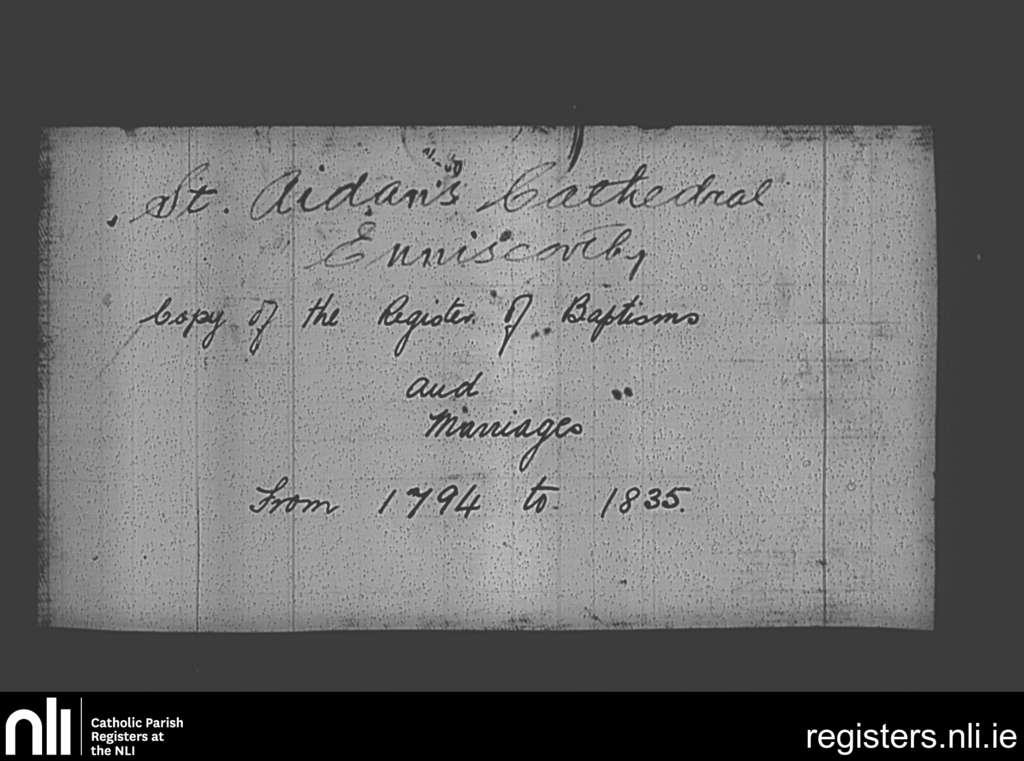 St. Aidan's Cathedral
Enniscorthy
Copy of the Register of Baptisms
and "
Marriages
From 1794 to 1835.
nli
Catholic Parish
Registers at
the NLI
registers.nli.ie